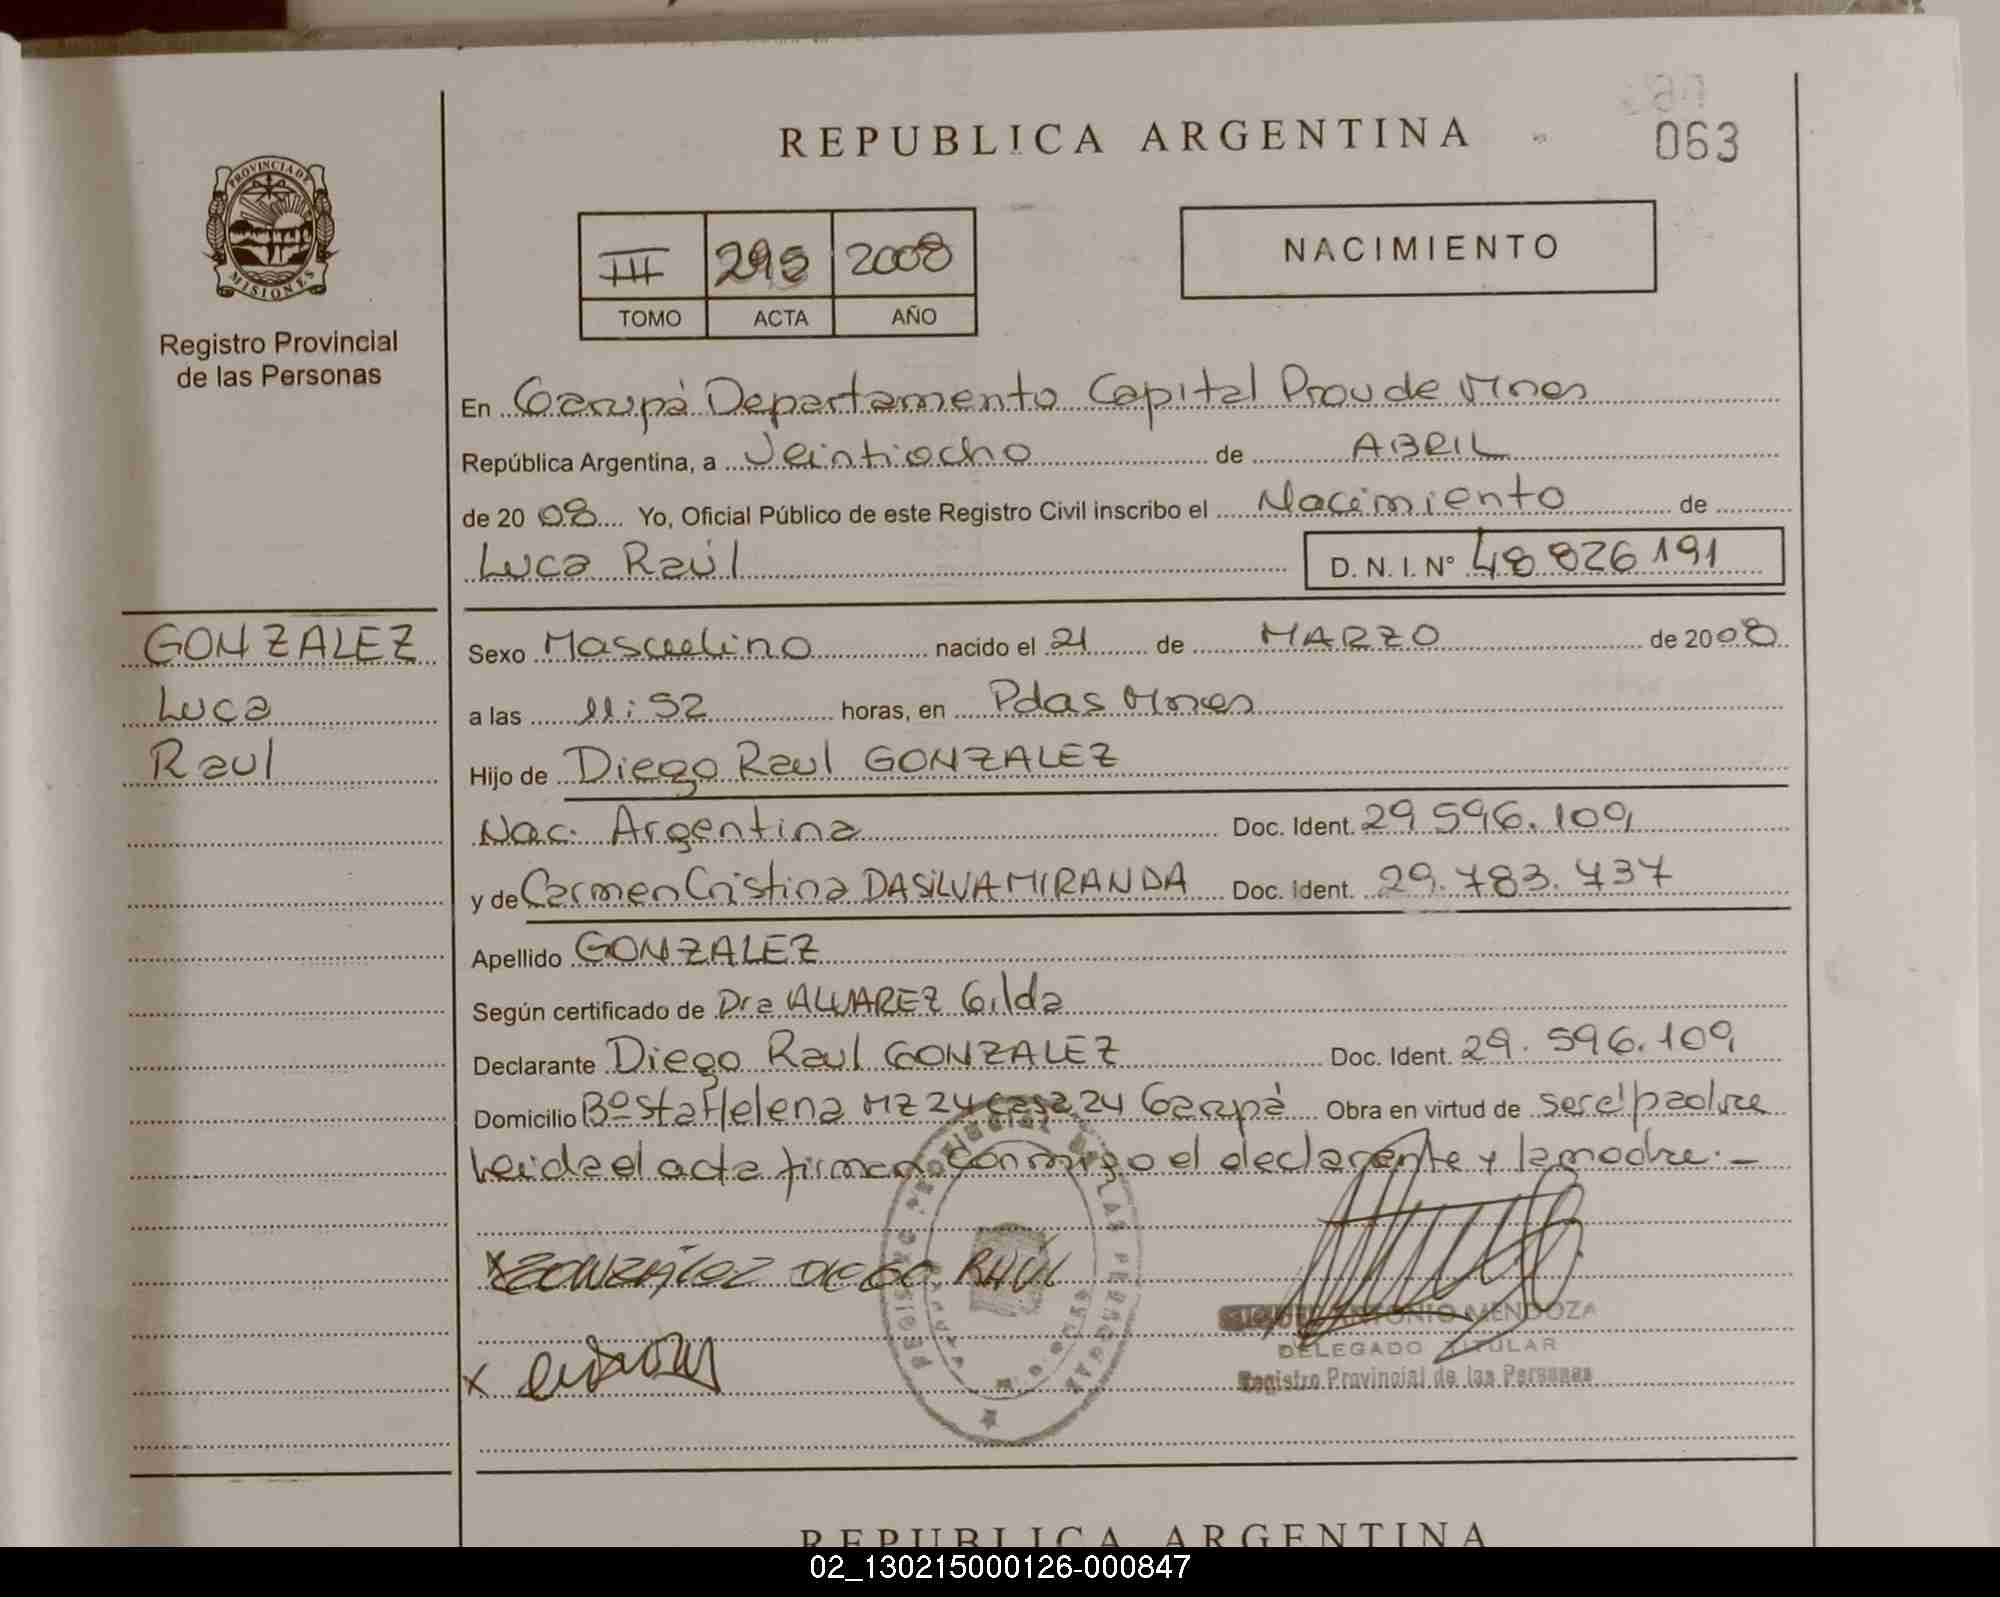 REPUBLICA ARGENTINA
063
PROVINCIA DE
MISIONES
Registro Provincial
de las Personas
III 2008
TOMO ACTA AÑO
NACIMIENTO
En Garupá Departamento Capital Prov de Mnes
República Argentina, a Veintiocho de ABRIL
de 2008 Yo, Oficial Público de este Registro Civil inscribo el Nacimiento de
Luca Raúl D. N. I. Nº 48 826 191
GONZALEZ
Luca
Raul
Sexo Masculino nacido el 21 de MARZO de 2008
a las 11:52 horas, en Pdas Mnes
Hijo de Diego Raul GONZALEZ
Nac. Argentina Doc. Ident. 29 596.109
y de Carmen Cristina DASILVA MIRANDA Doc. Ident. 29.783.737
Apellido GONZALEZ
Según certificado de Dra ALVAREZ Gilda
Declarante Diego Raul GONZALEZ Doc. Ident. 29.596.109
Domicilio Bº Sta Helena MZ 24 casa 24 Garupá Obra en virtud de ser el padre
Leida el acta firman conmigo el declarante y la madre.-
X GONZÁLEZ DIEGO RAUL
X
ANTONIO MENDOZA
DELEGADO TITULAR
Registro Provincial de las Personas
REPUBLICA ARGENTINA
02_130215000126-000847